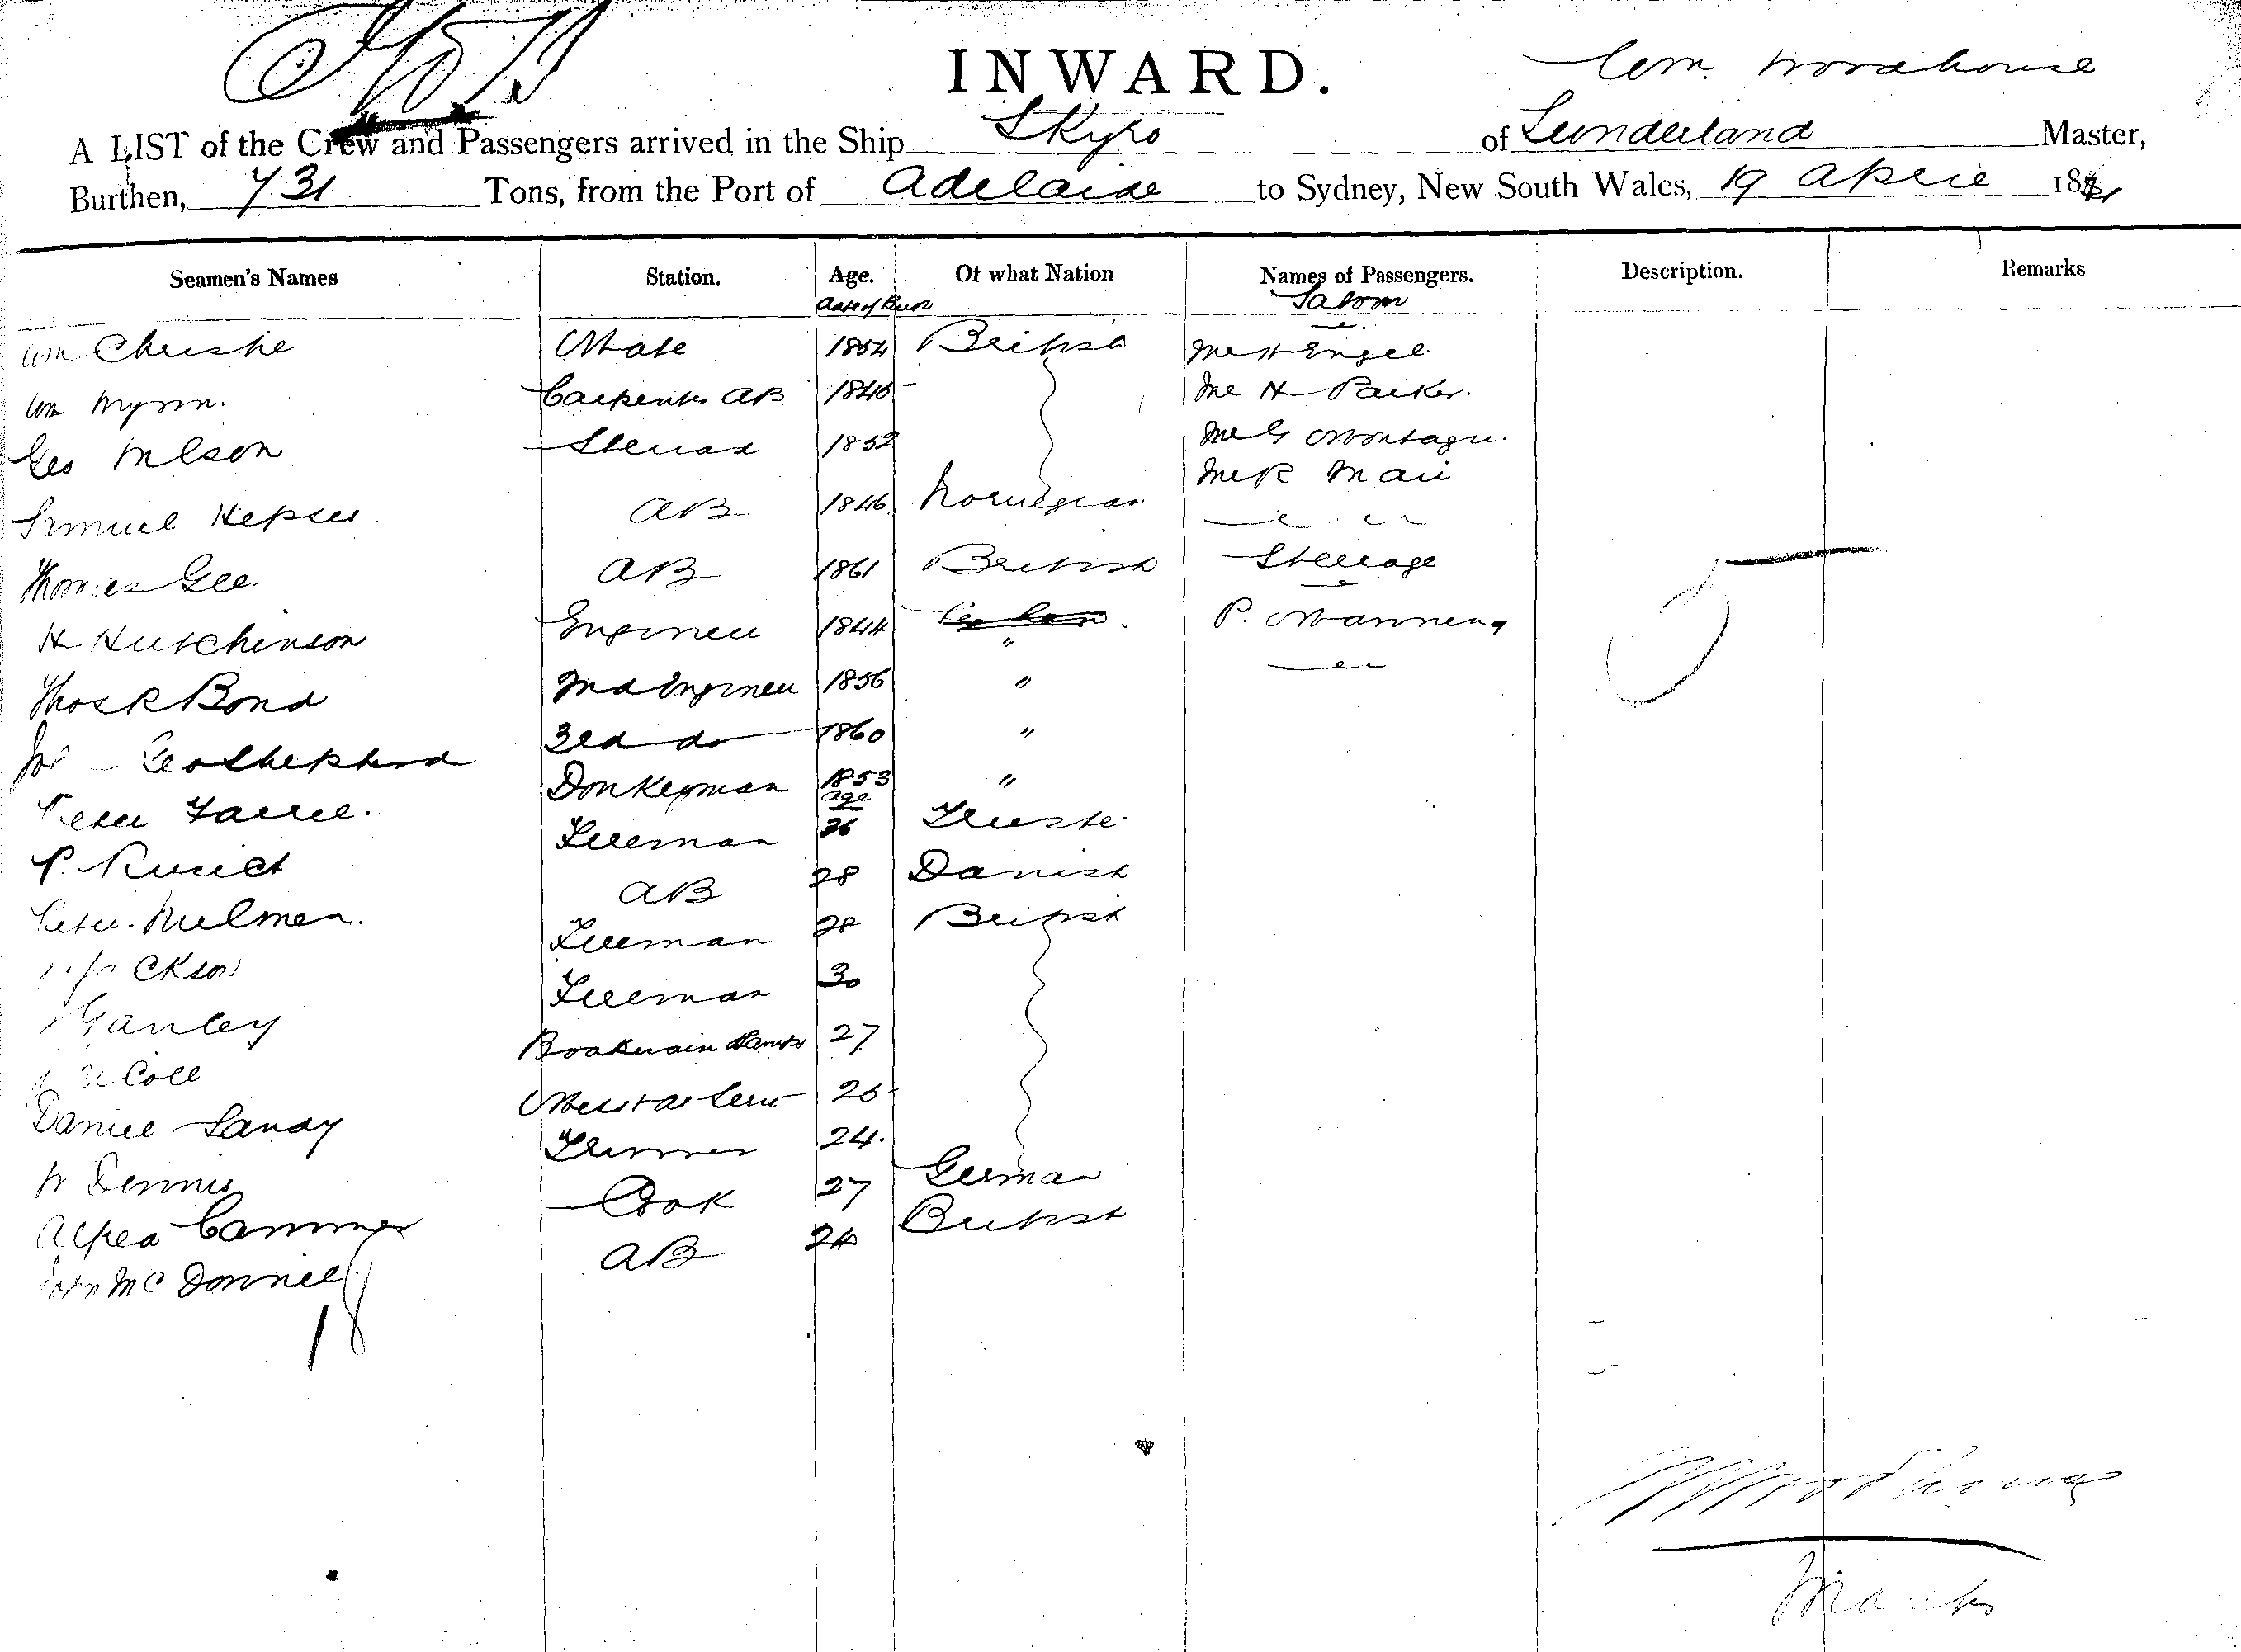 INWARD.
Wm. Woodhouse
A LIST of the Crew and Passengers arrived in the Ship Skyro of Sunderland Master,
Burthen, 731 Tons, from the Port of Adelaide to Sydney, New South Wales, 19 April 1881
Seamen's Names Station. Age. Of what Nation Names of Passengers. Description. Remarks
Date of Birth Saloon
Wm Christie Mate 1854 British Mr H Engel
Wm Carpenter AB 1846 Mr H Parker.
Geo Nelson Steward 1852 Mr G Montagu.
Samuel AB 1846 Norwegian Mr R Mair
Thomas Gee AB 1861 British Steerage
H Hutchinson Engineer 1844 " P. Manning
Thos R Bond 2nd Engineer 1856 "
Geo Shepherd 3rd do 1860 "
Peter Donkeyman 1853 "
age
P. Fireman 26 Trieste
Peter AB 28 Danish
Jackson Fireman 28 British
Ganley Fireman 30
Cole Boatswain & Lamps 27
Daniel Sandy 25
W Dennis Trimmer 24.
Alfred Cook 27 German
John McDonnell AB 24 British
18